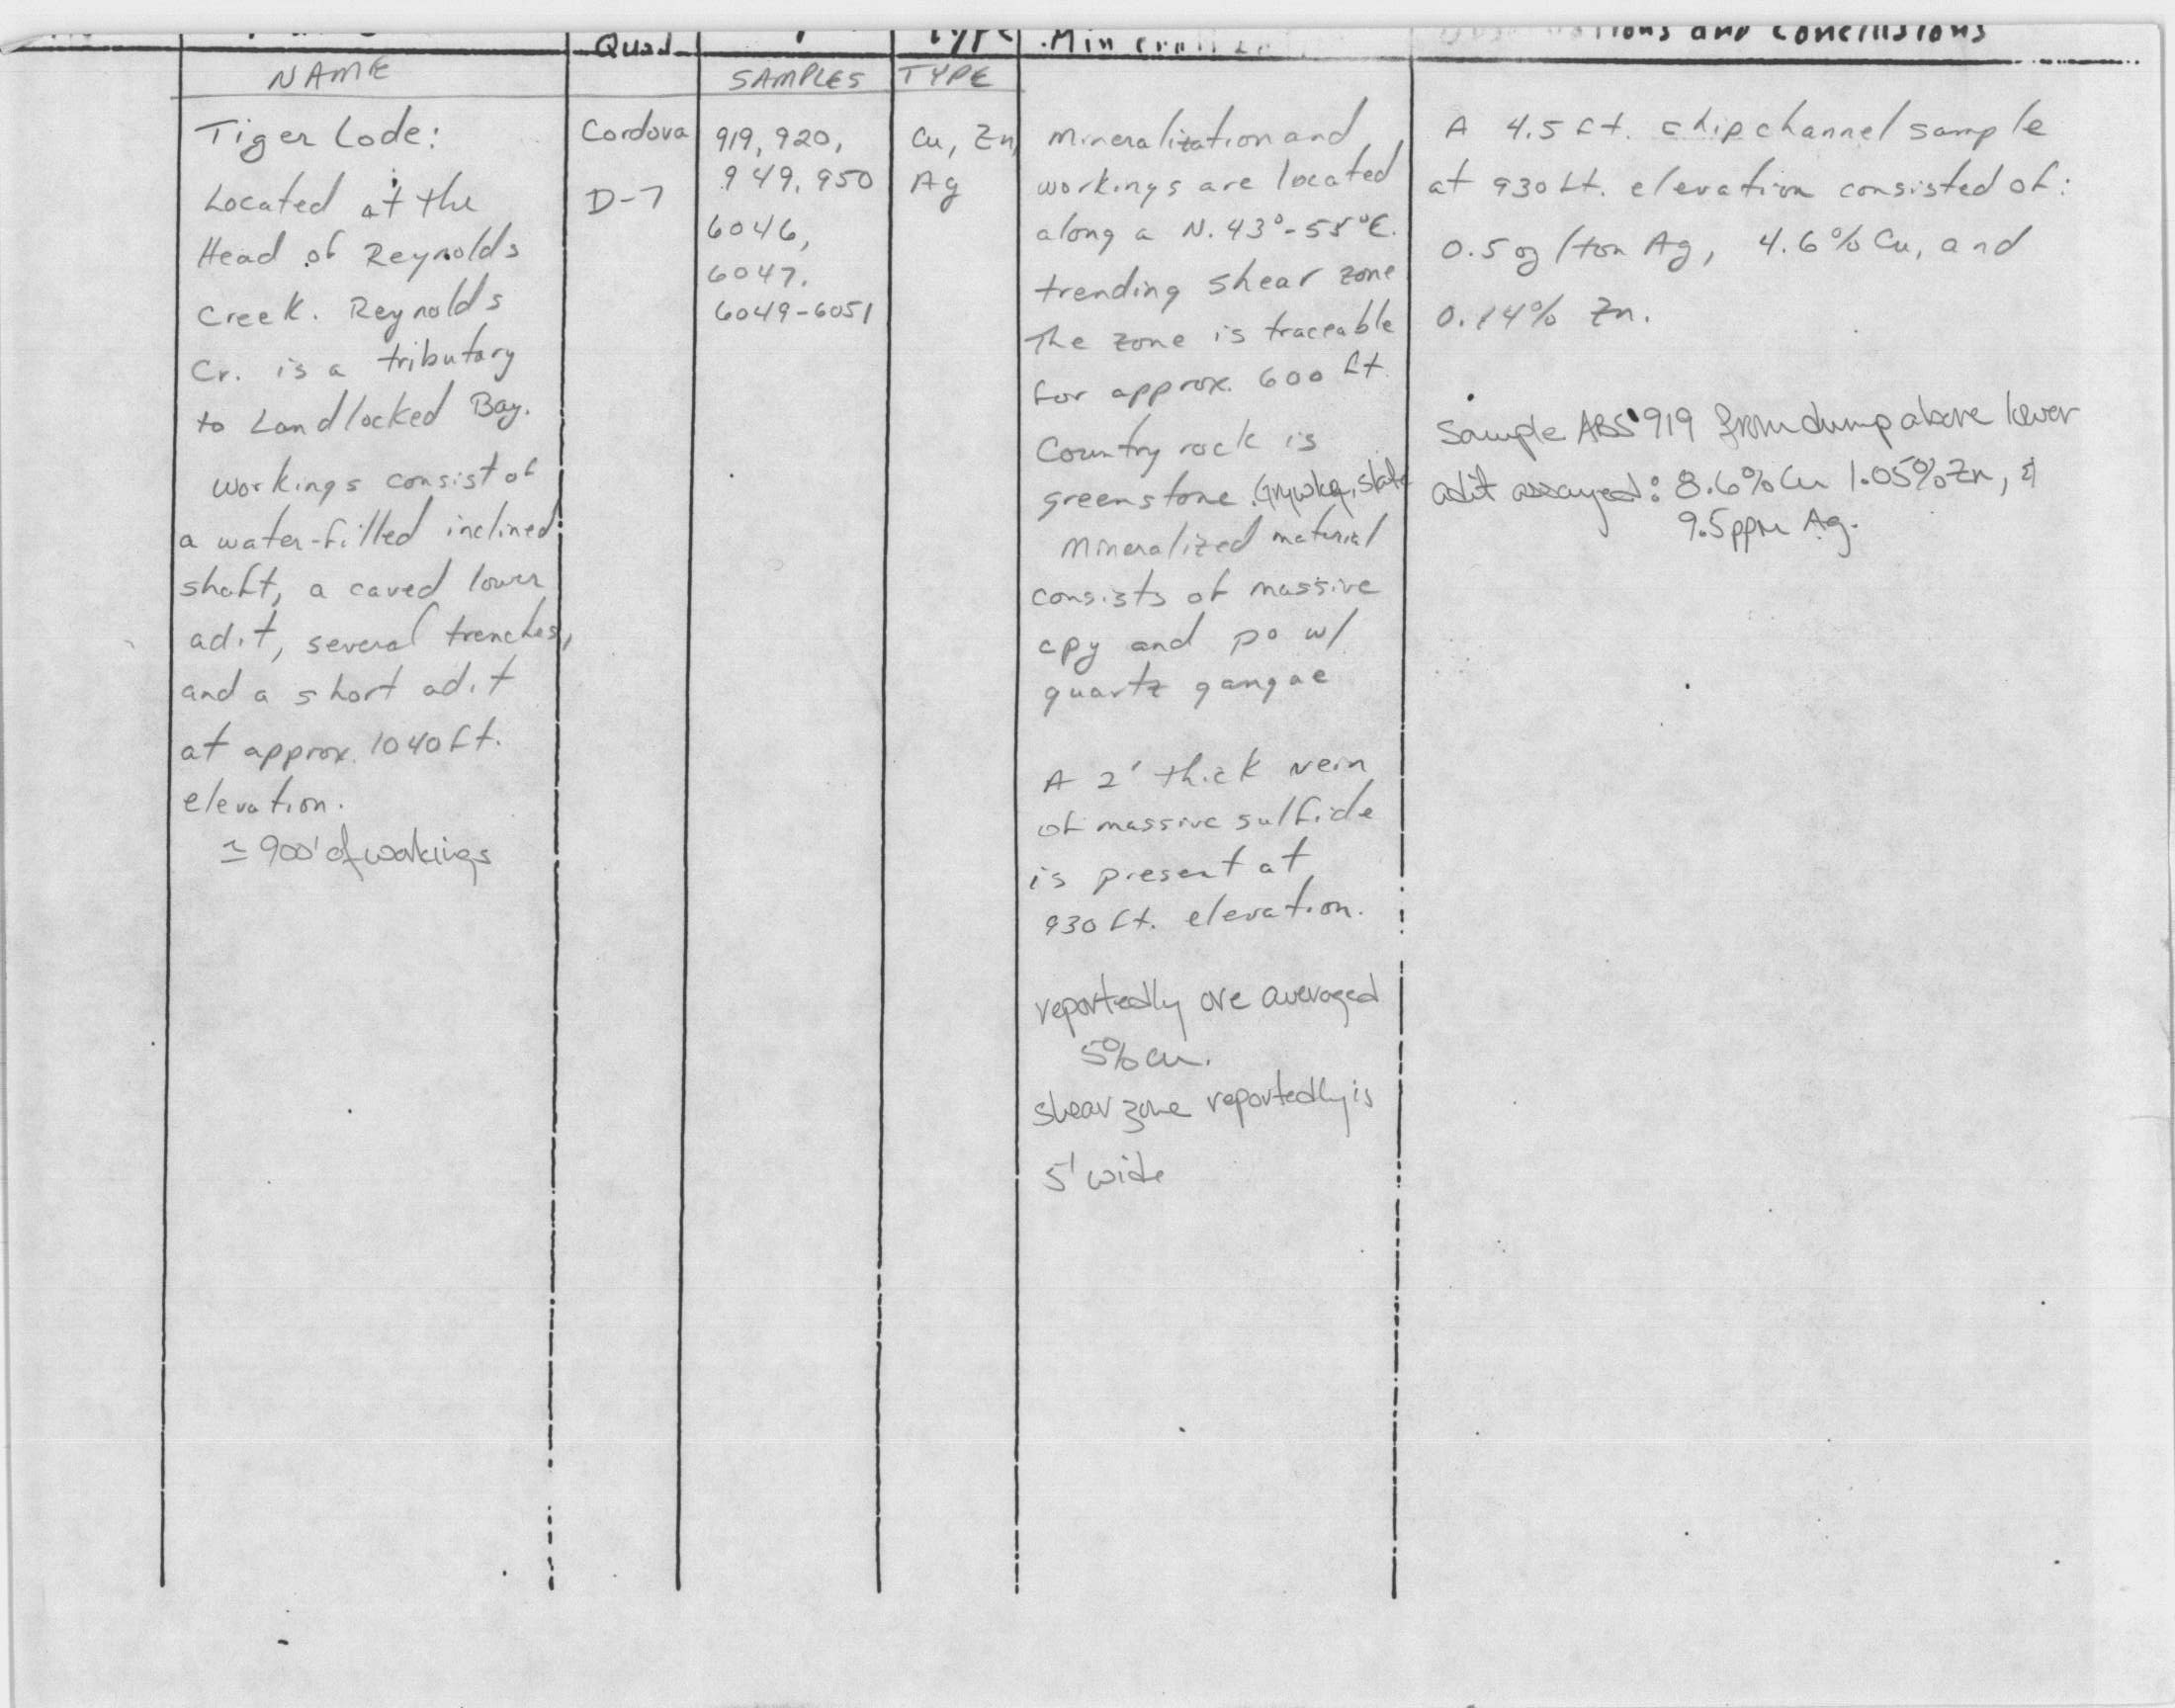 Quad
Type
NAME
SAMPLES
TYPE
Tiger Lode:
Located at the
Head of Reynolds
Creek. Reynolds
Cr. is a tributary
to Landlocked Bay.
Workings consist of
a water-filled inclined
shaft, a caved lower
adit, several trenches,
and a short adit
at approx. 1040 ft.
elevation.
≃ 900' of workings
Cordova
D-7
919, 920,
949, 950
6046,
6047,
6049-6051
Cu, Zn,
Ag
Mineralization and
workings are located
along a N. 43°-55°E.
trending shear zone
The zone is traceable
for approx. 600 ft.
Country rock is
greenstone. Grywke, slate
Mineralized material
consists of massive
cpy and po w/
quartz gangae
A 2' thick vein
of massive sulfide
is present at
930 ft. elevation.
reportedly ore averaged
5% Cu.
shear zone reportedly is
5' wide
and Conclusions
A 4.5 ft. chip channel sample
at 930 ft. elevation consisted of:
0.5 oz/ton Ag, 4.6% Cu, and
0.14% Zn.
Sample ABS 919 from dump above lower
adit assayed: 8.6% Cu 1.05% Zn, &
9.5 ppm Ag.